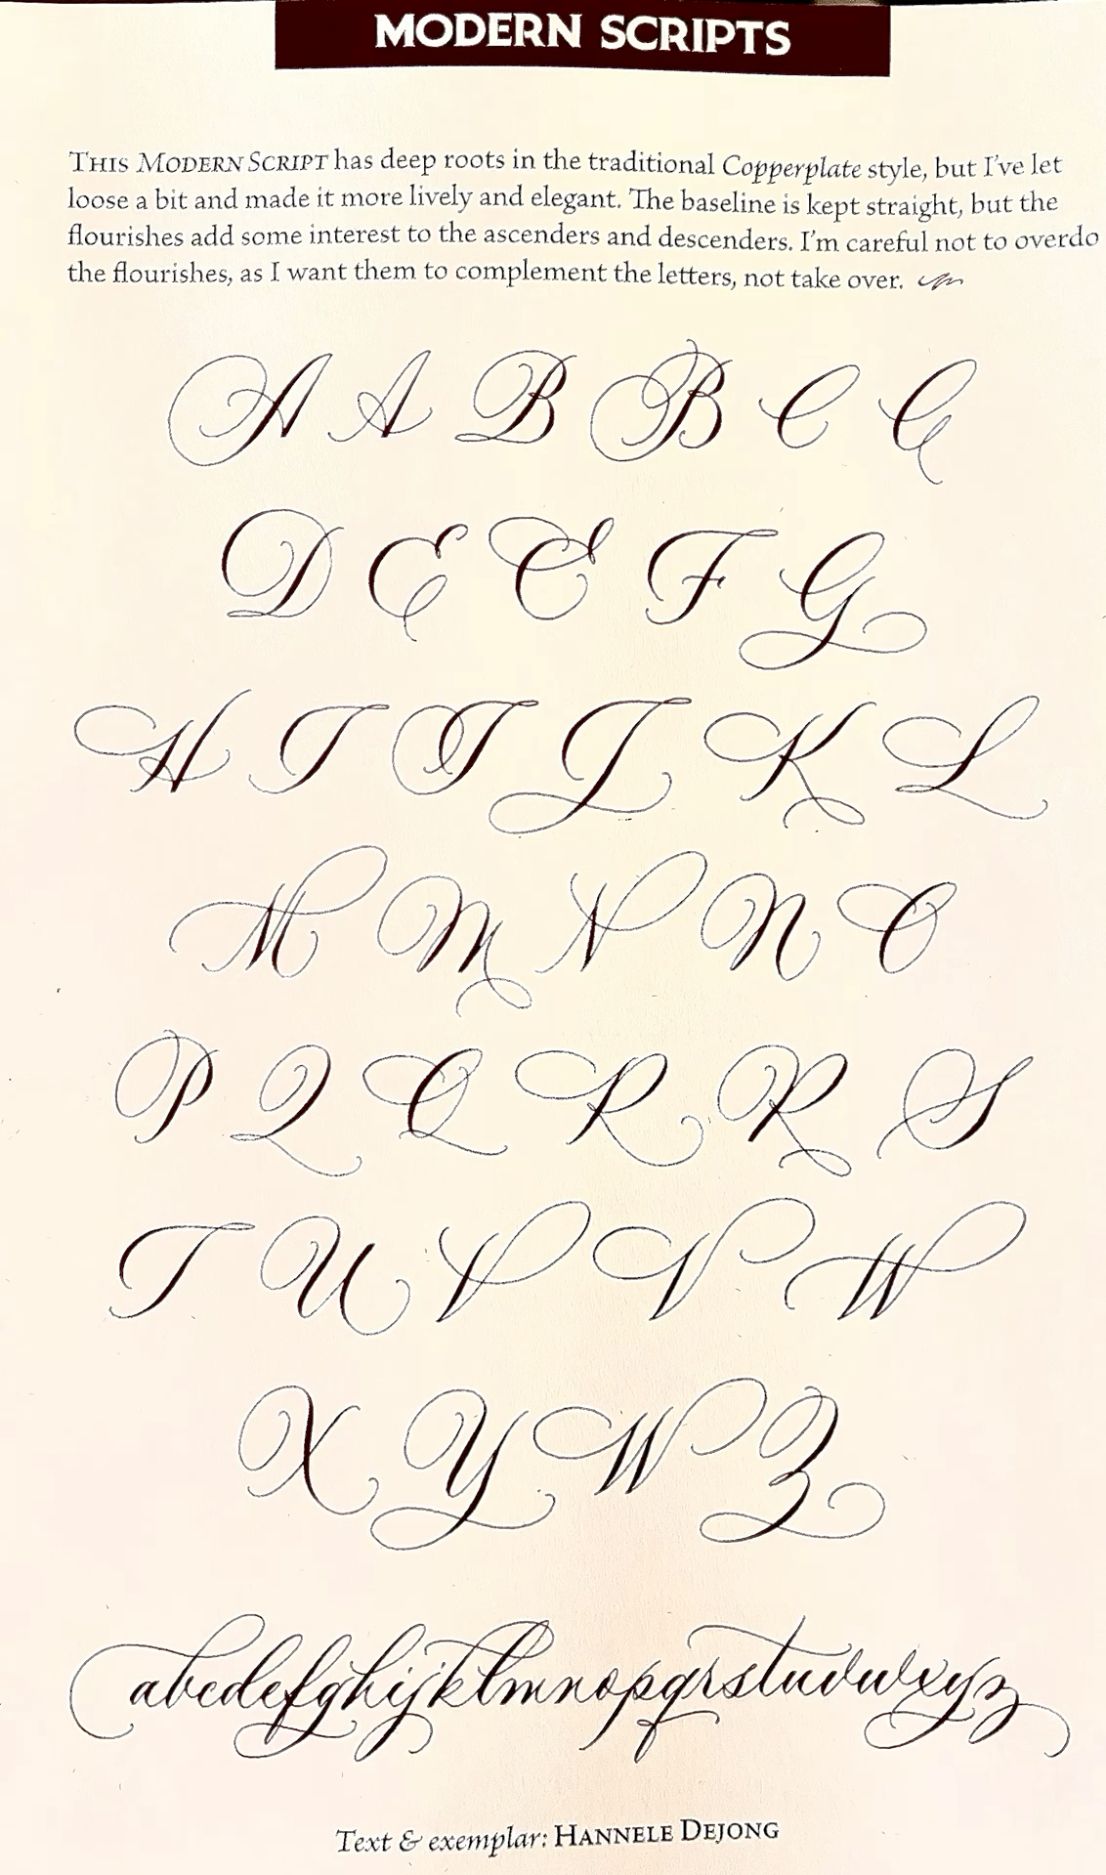 MODERN SCRIPTS
THIS MODERN SCRIPT has deep roots in the traditional Copperplate style, but I've let
loose a bit and made it more lively and elegant. The baseline is kept straight, but the
flourishes add some interest to the ascenders and descenders. I'm careful not to overdo
the flourishes, as I want them to complement the letters, not take over.
A A B B C C
D E E F G
H I I J K L
M M N N O
P Q Q R R S
T U V V W
X Y W Z
abcdefghijklmnopqrstuvwxyz
Text & exemplar: HANNELE DEJONG